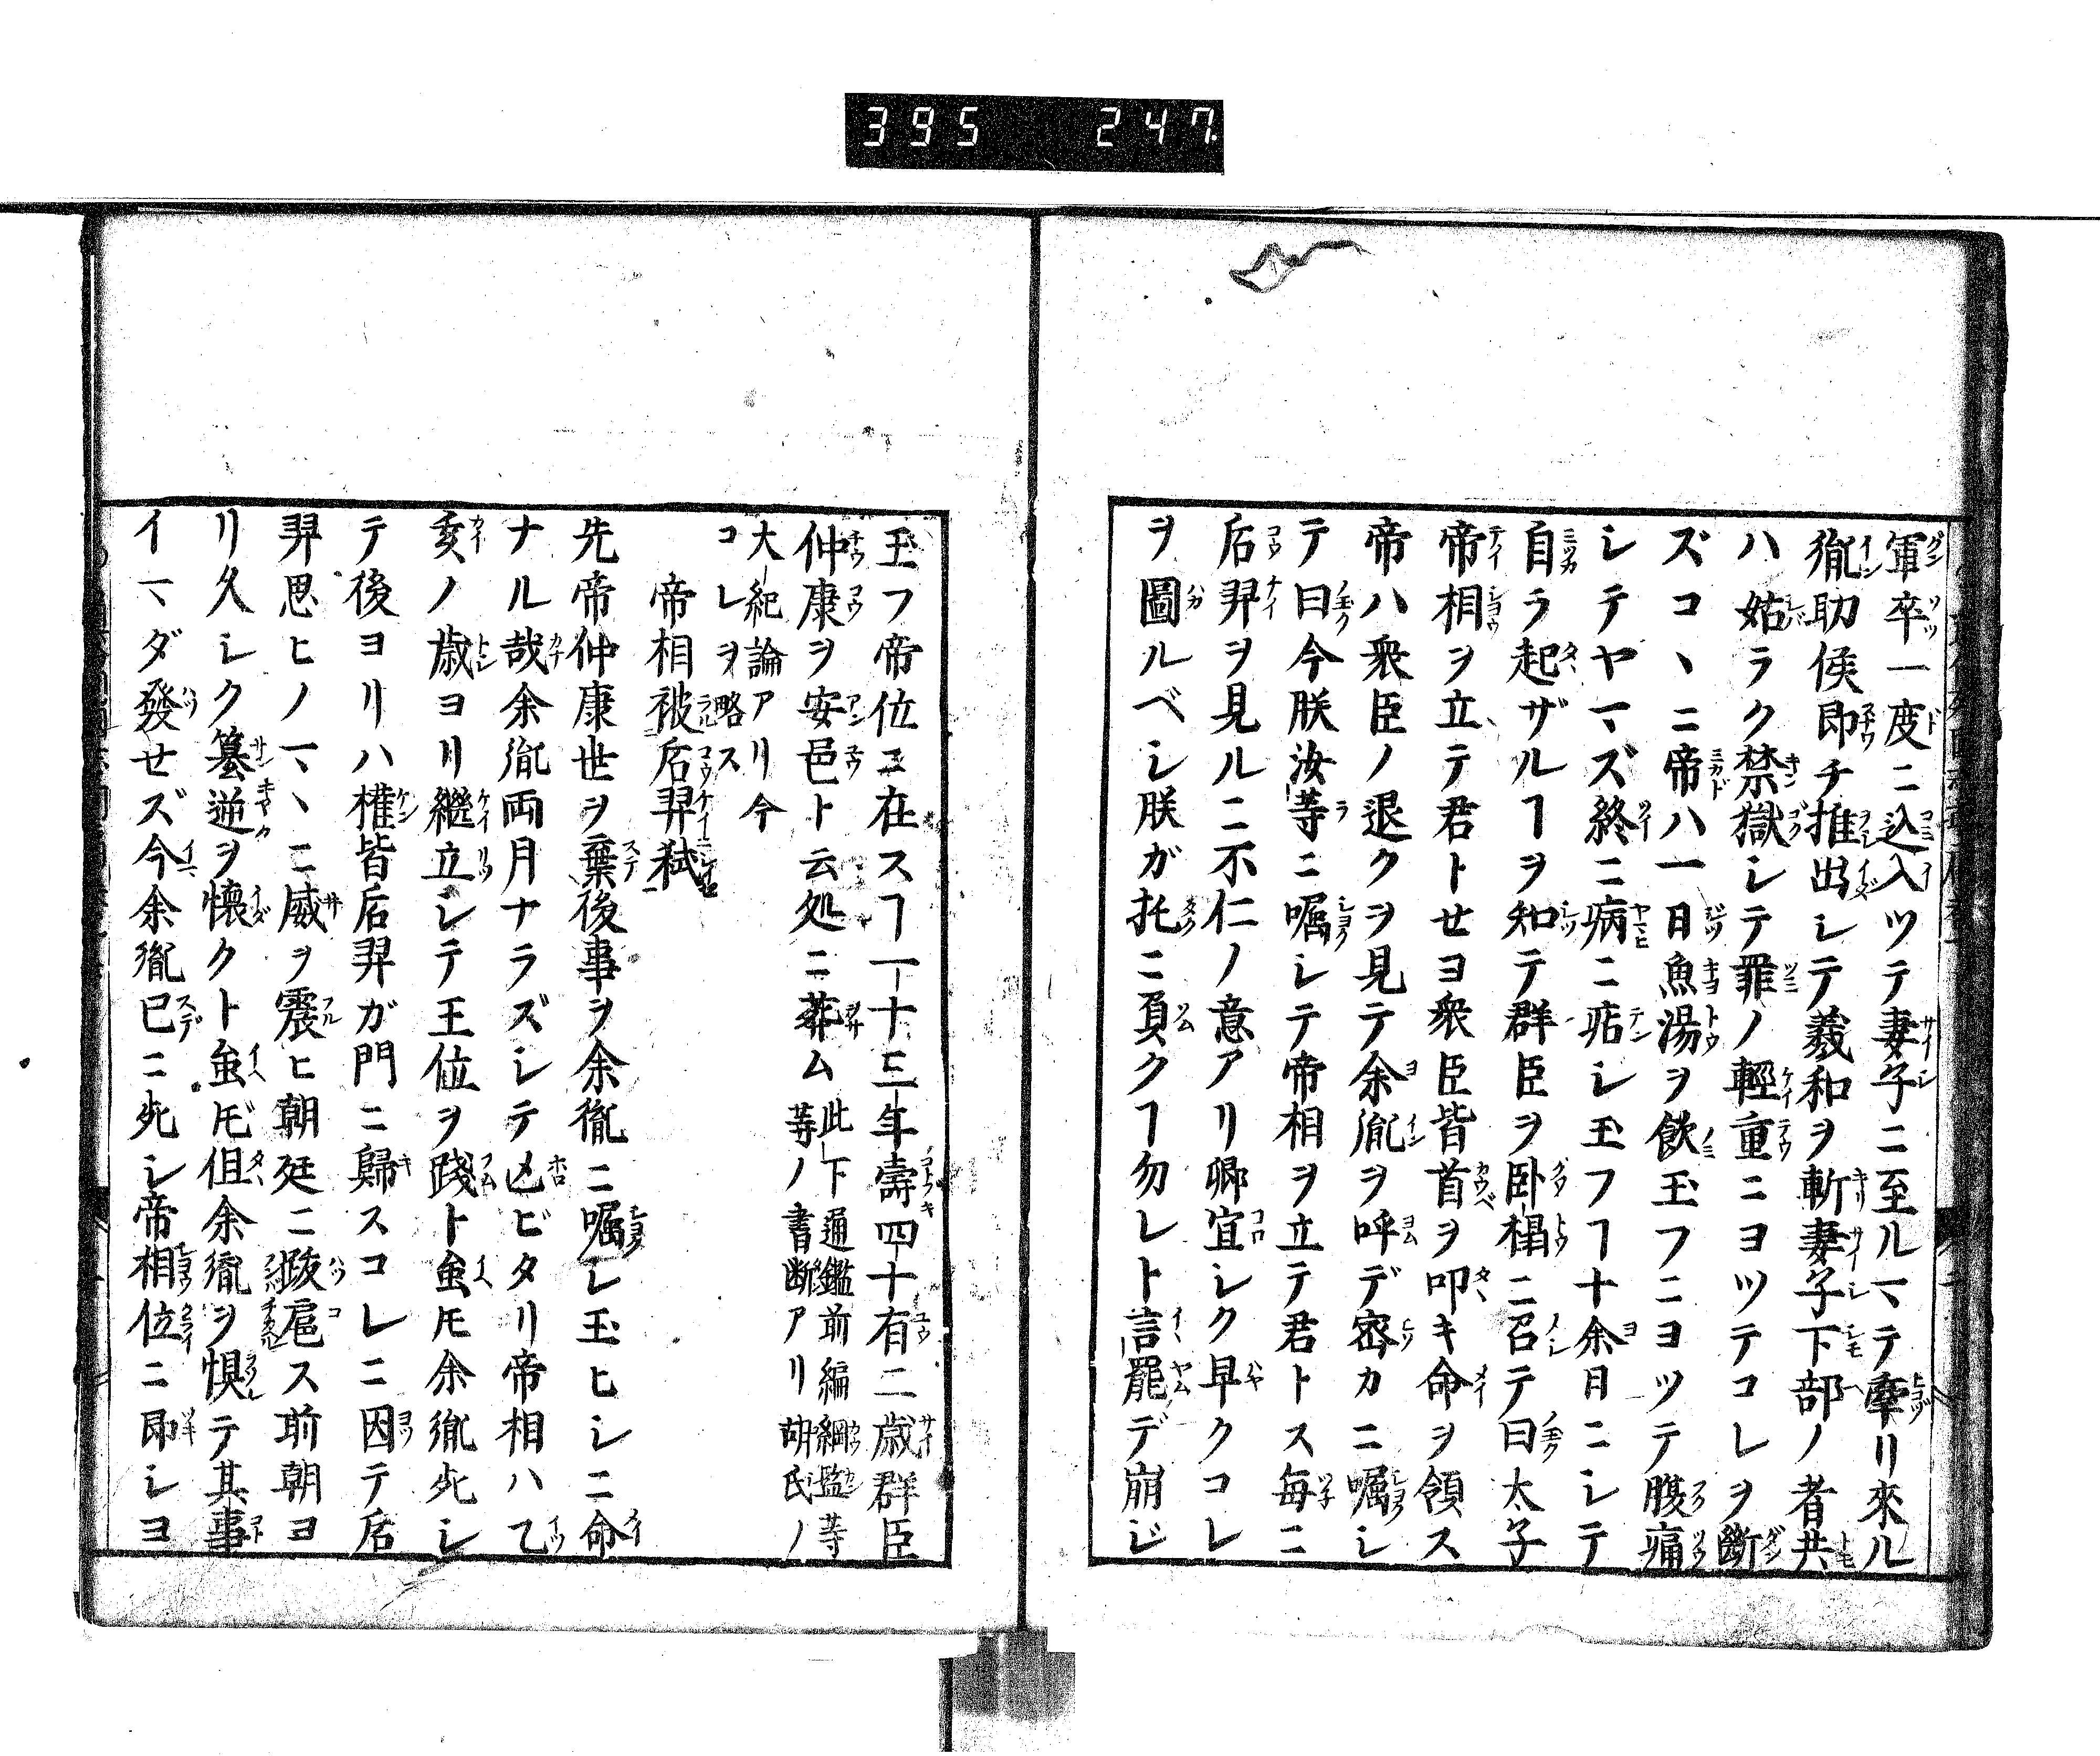 395 247
軍卒一度ニ込入ツテ妻子ニ至ルマテ牽リ來ル
胤劯侯即チ推出シテ羲和ヲ斬妻子下部ノ者共
ハ姑ラク禁獄シテ罪ノ輕重ニヨツテコレヲ斷
ズコヽニ帝ハ一日魚湯ヲ飲玉フニヨツテ腹痛
シテヤマズ終ニ病ニ㾉シ玉フヿ十余日ニシテ
自ラ起ザルヿヲ知テ群臣ヲ卧榻ニ召テ曰太子
帝相ヲ立テ君トセヨ衆臣皆首ヲ叩キ命ヲ領ス
帝ハ衆臣ノ退クヲ見テ余胤ヲ呼デ密カニ嘱シ
テ曰今朕汝等ニ嘱シテ帝相ヲ立テ君トス毎ニ
后羿ヲ見ルニ不仁ノ意アリ卿宜シク早クコレ
ヲ圖ルベシ朕ガ托ニ負クヿ勿レト言罷デ崩ジ
玉フ帝位ニ在スヿ一十三年壽四十有二歳群臣
仲康ヲ安邑ト云処ニ葬ム此下通鑑前編綱鑑等
等ノ書断アリ胡氏ノ
大紀論アリ今
コレヲ略ス
帝相被后羿弑
先帝仲康世ヲ棄後事ヲ余胤ニ嘱シ玉ヒシニ命
ナル哉余胤両月ナラズシテ亾ビタリ帝相ハ乙
亥ノ歳ヨリ繼立シテ王位ヲ踐ト虽𪜈余胤死シ
テ後ヨリハ權皆后羿ガ門ニ歸スコレニ因テ后
羿思ヒノマヽニ威ヲ震ヒ朝廷ニ跋扈ス前朝ヨ
リ久シク簒逆ヲ懷クト虽𪜈但余胤ヲ惧テ其事
イマダ發セズ今余胤已ニ死シ帝相位ニ即シヨ